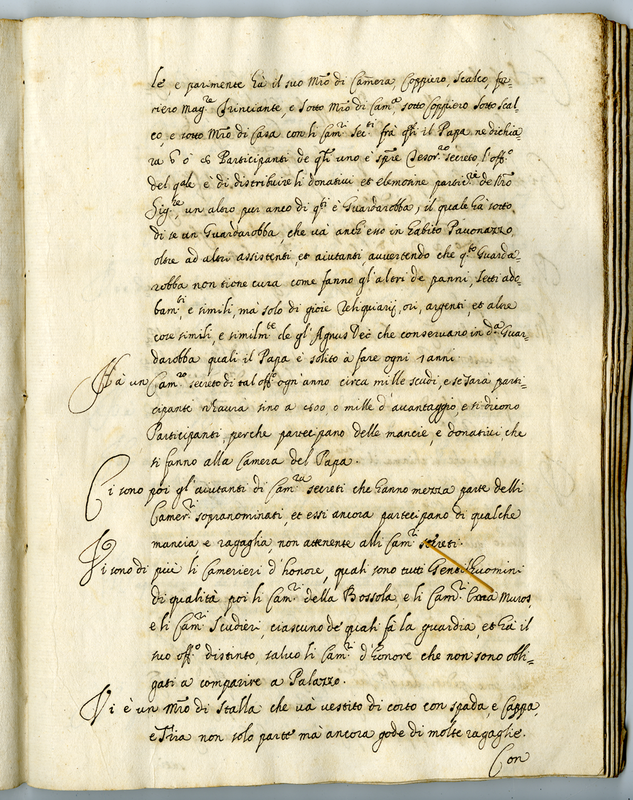 le e parimente hà il suo Mrõ di Camera, Coppiero, Scalco, fo=
riero Mag.re Trinciante, e sotto Mrõ di Cam.a sotto Coppiero sotto Scal
co, e sotto Mrõ di Casa con li Cam.ri Sec.ti frà q̃li il Papa ne dichia=
ra 6 ò 8 Participanti de q̃li uno è sp̃re Tesor.ro secreto, l'off.o
del q̃ale e di distribuire li donativi et elemosine partic.re de Nrõ
Sig.re, un altro pur anco di q̃ti è Guardarobba, il quale hà sotto
di se un Guardarobba, che và anch'esso in habito Pavonazzo
oltre ad altri assistenti, et aiutanti avvertendo che q.to Guarda=
robba non tiene cura come fanno gl'altri de panni, letti ado=
bam.ti, e simili, mà solo di gioie Reliquiarij, ori, argenti, et altre
cose simili, e similm.te de gl'Agnus Dei che conservano in d.a Guar=
darobba quali il Papa è solito à fare ogni 7 anni.
Hà un Cam.ro secreto di tal off.o ogni anno circa mille scudi, e se sarà parti=
cipante n'haurà sino a 1500, o mille d'avantaggio, e si dicono
Participanti, perche partecipano delle mancie, e donativi, che
si fanno alla Camera del Papa.
Ci sono poi gl'aiutanti di Cam.ra secreti che hanno mezza parte delli
Camer.ri sopranominati, et essi ancora partecipano di qualche
mancia e ragaglia, non attenente alli Cam.ri secreti.
Vi sono di più li Camerieri d'honore, quali sono tutti Gentil'huomini
di qualità, poi li Cam.ri della Bossola, e li Cam.ri Extra Muros,
e li Cam.ri Scudieri, ciascuno de quali fà la guardia, et hà il
suo off.o distinto, salvo li Cam.ri d'Honore che non sono obli=
gati a comparire a Palazzo.
Vi è un Mrõ di Stalla che và vestito di corto con spada, e Cappa,
e Tira non solo parte mà ancora gode di molte ragaglie.
Con